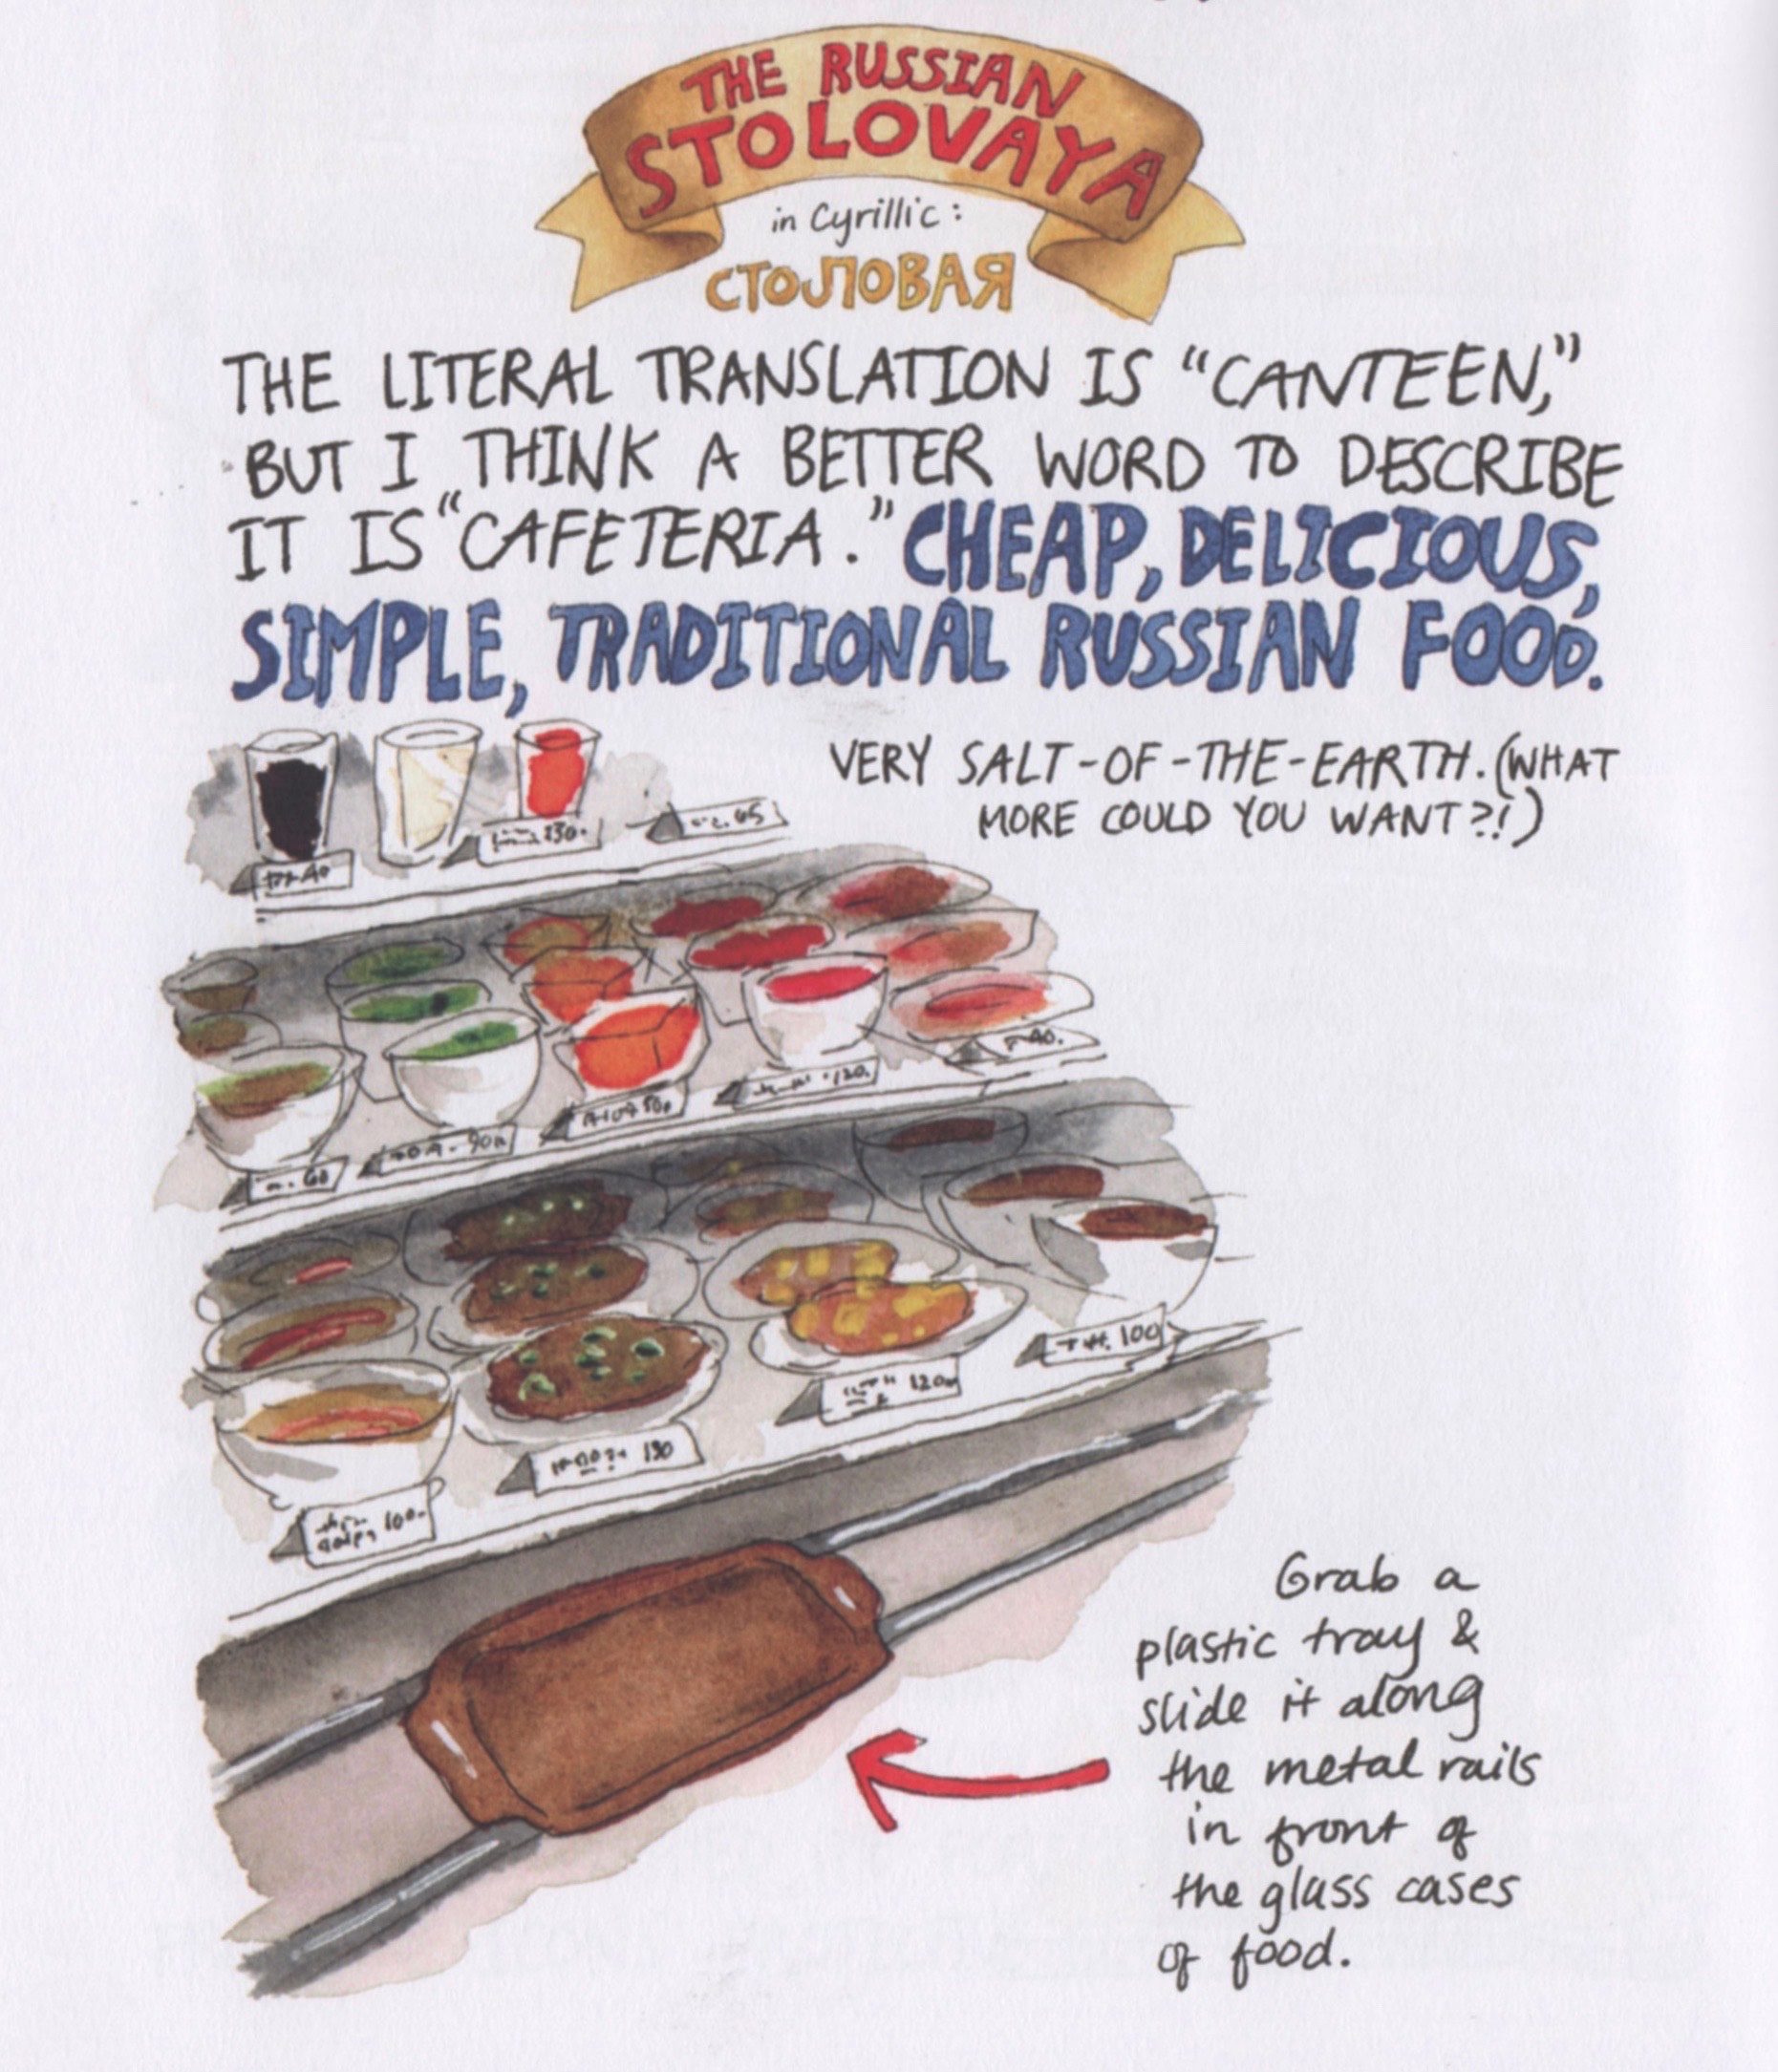 THE RUSSIAN
STOLOVAYA
in Cyrillic:
СТОЛОВАЯ
THE LITERAL TRANSLATION IS "CANTEEN,"
BUT I THINK A BETTER WORD TO DESCRIBE
IT IS "CAFETERIA." CHEAP, DELICIOUS,
SIMPLE, TRADITIONAL RUSSIAN FOOD.
VERY SALT-OF-THE-EARTH. (WHAT
MORE COULD YOU WANT?!)
40
130.
65
40.
120.
50р
90р
60
100
120р
130
100-
Grab a
plastic tray &
slide it along
the metal rails
in front of
the glass cases
of food.